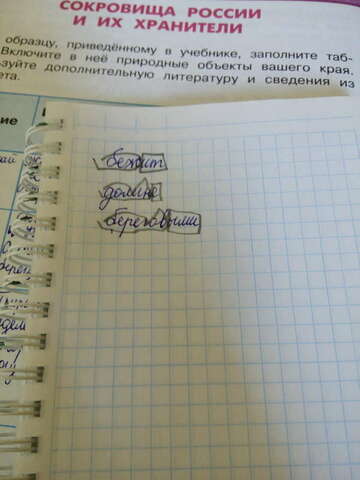 СОКРОВИЩА РОССИИ
И ИХ ХРАНИТЕЛИ
образцу, приведённому в учебнике, заполните таб-
Включите в неё природные объекты вашего края.
зуйте дополнительную литературу и сведения из
ета.
ие
бежит
долине
береговыми